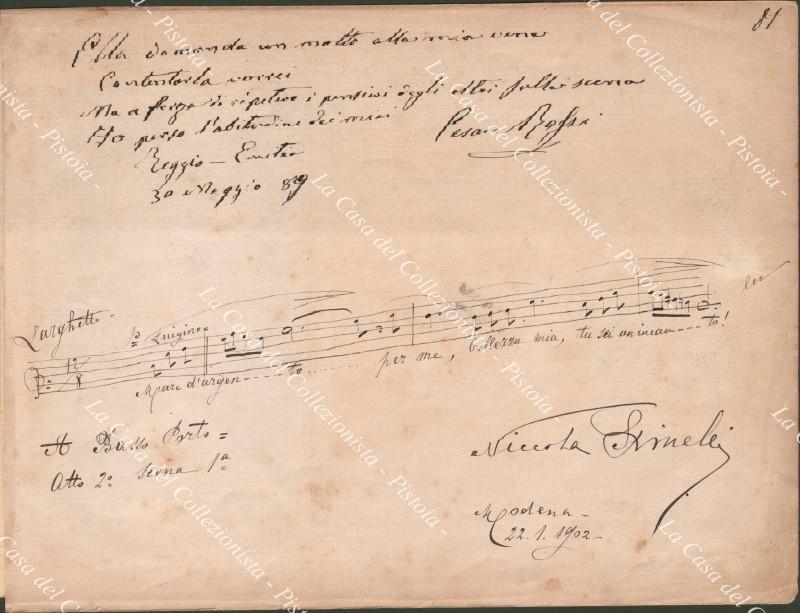 81
Ella domanda un motto alla mia vena
Contentarla vorrei
Ma a forza di ripetere i pensieri degli altri sulla scena
Ho perso l'abitudine dei miei
Cesare Rossi
Reggio - Emilia
30 Maggio 89
Larghetto
Luigino =
12/8
Mare d'argen ---- to ---- per me, bellezza mia, tu sei un incan ---- to!
A Basso Porto =
Atto 2º Scena 1ª
Niccola
Modena -
22. 1. 1902 -
La Casa del Collezionista - Pistoia -